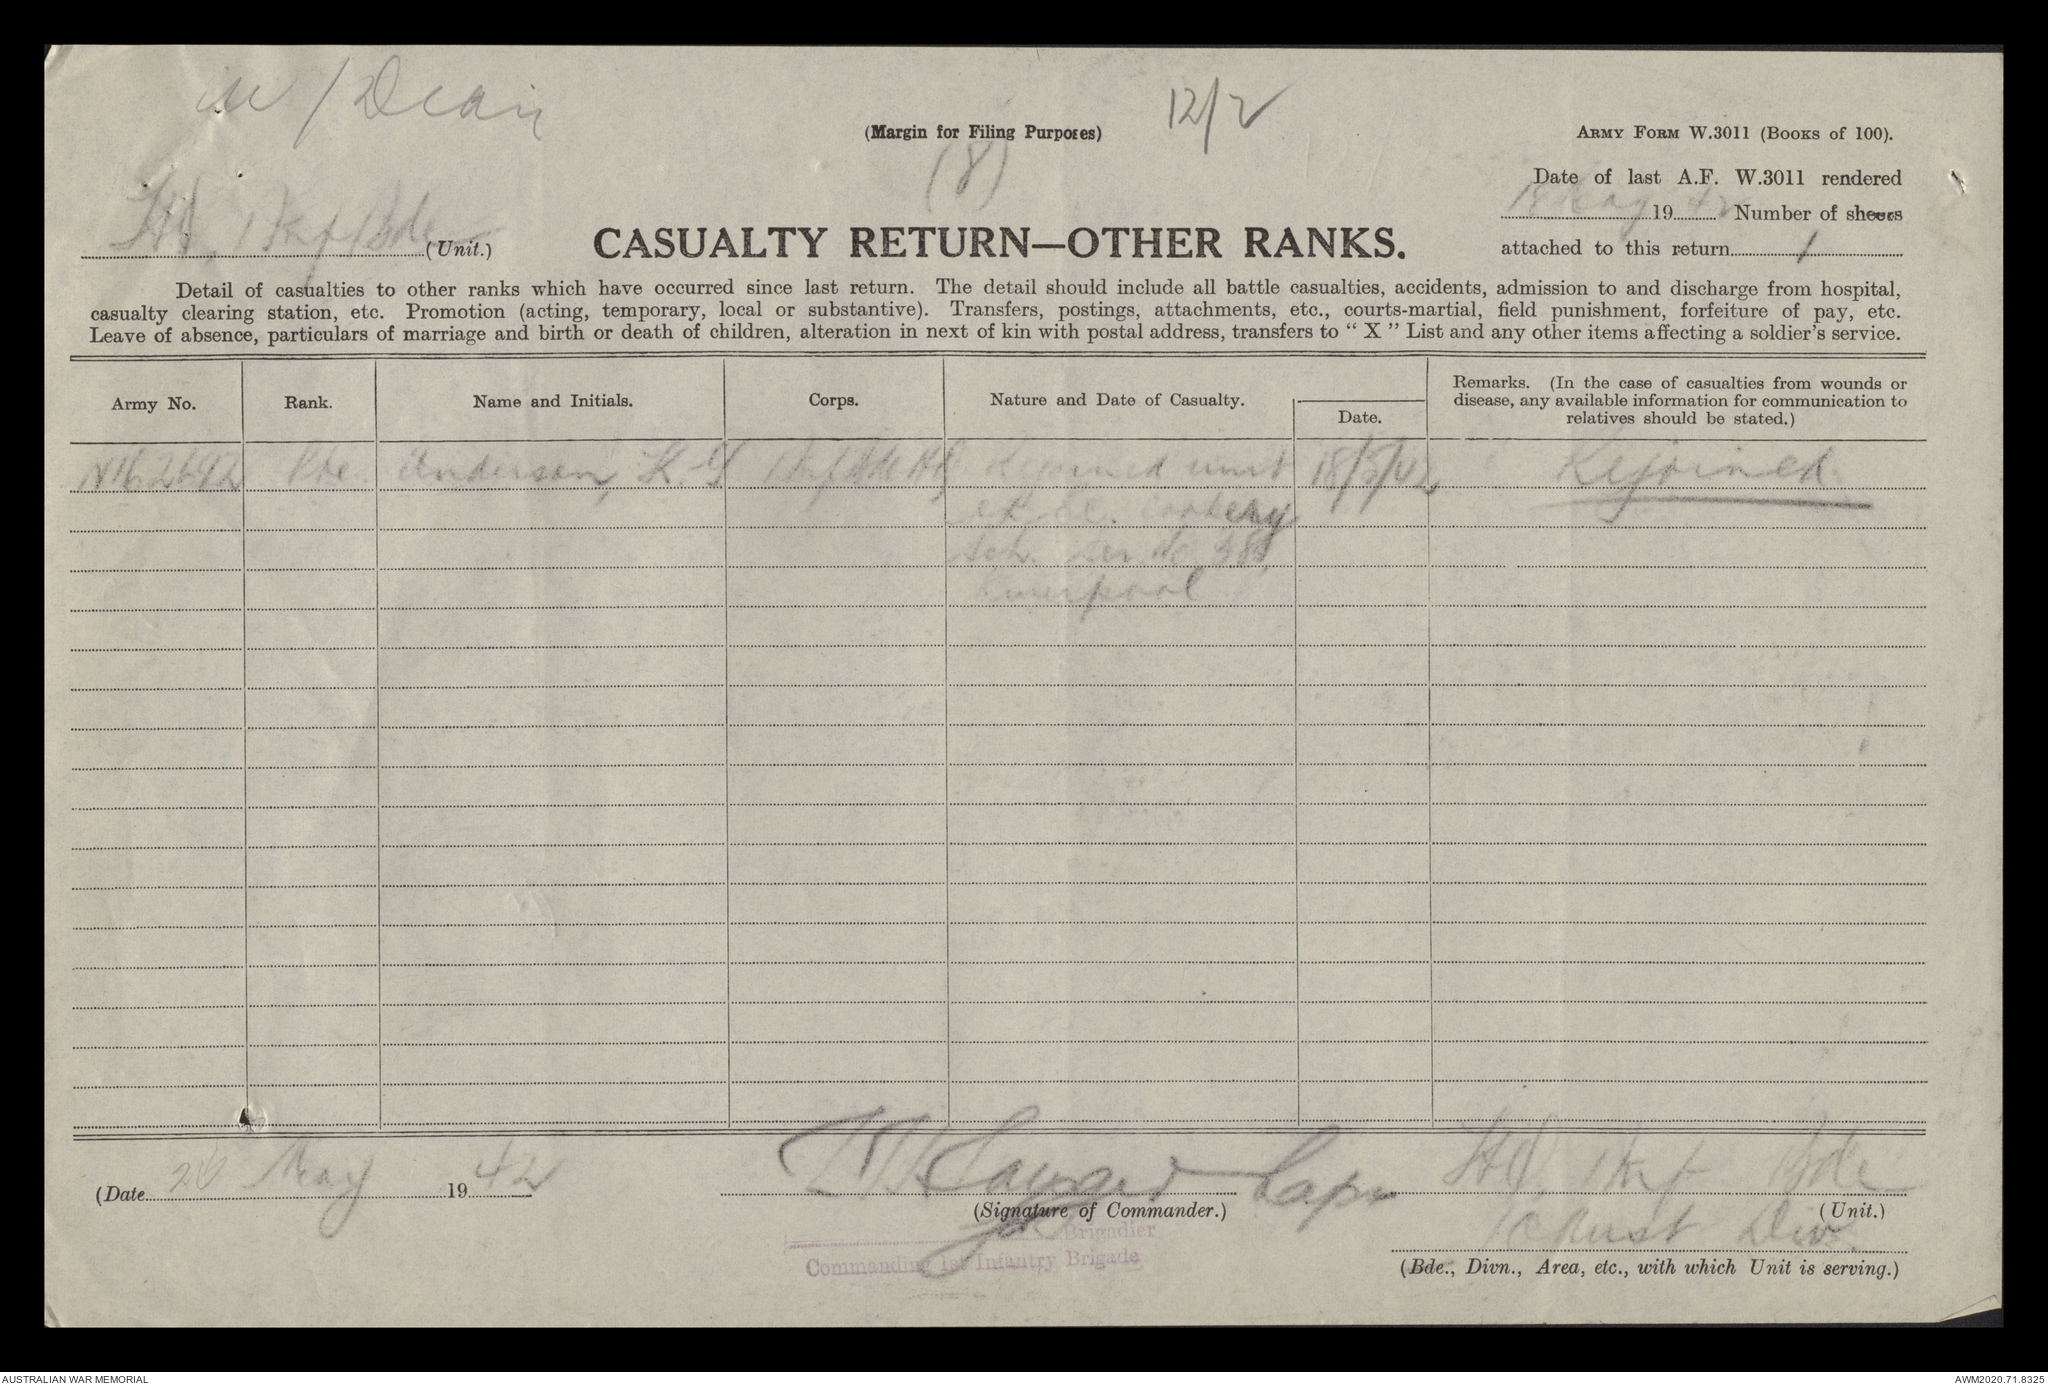 W/Dean
(Margin for Filing Purposes)
12/2
ARMY FORM W.3011 (BOOKS of 100).
(8)
Date of last A.F. W.3011 rendered
18 May 19 42 Number of sheets
HQ, 1 Inf Bde (Unit.)
CASUALTY RETURN—OTHER RANKS.
attached to this return 1
Detail of casualties to other ranks which have occurred since last return. The detail should include all battle casualties, accidents, admission to and discharge from hospital,
casualty clearing station, etc. Promotion (acting, temporary, local or substantive). Transfers, postings, attachments, etc., courts-martial, field punishment, forfeiture of pay, etc.
Leave of absence, particulars of marriage and birth or death of children, alteration in next of kin with postal address, transfers to " X " List and any other items affecting a soldier's service.
Army No. Rank. Name and Initials. Corps. Nature and Date of Casualty. Date. Remarks. (In the case of casualties from wounds or
disease, any available information for communication to
relatives should be stated.)
N162642 Pte Anderson, K. G 1 Inf Bde HQ Rejoined unit 18/5/42 Rejoined
Cookery
Sch.
Liverpool
(Date 26 May 19 42 Capt HQ, 1 Inf Bde
(Signature of Commander.) (Unit.)
Brigadier
Commanding 1st Infantry Brigade
1 Aust Div.
(Bde., Divn., Area, etc., with which Unit is serving.)
AUSTRALIAN WAR MEMORIAL
AWM2020.71.8325